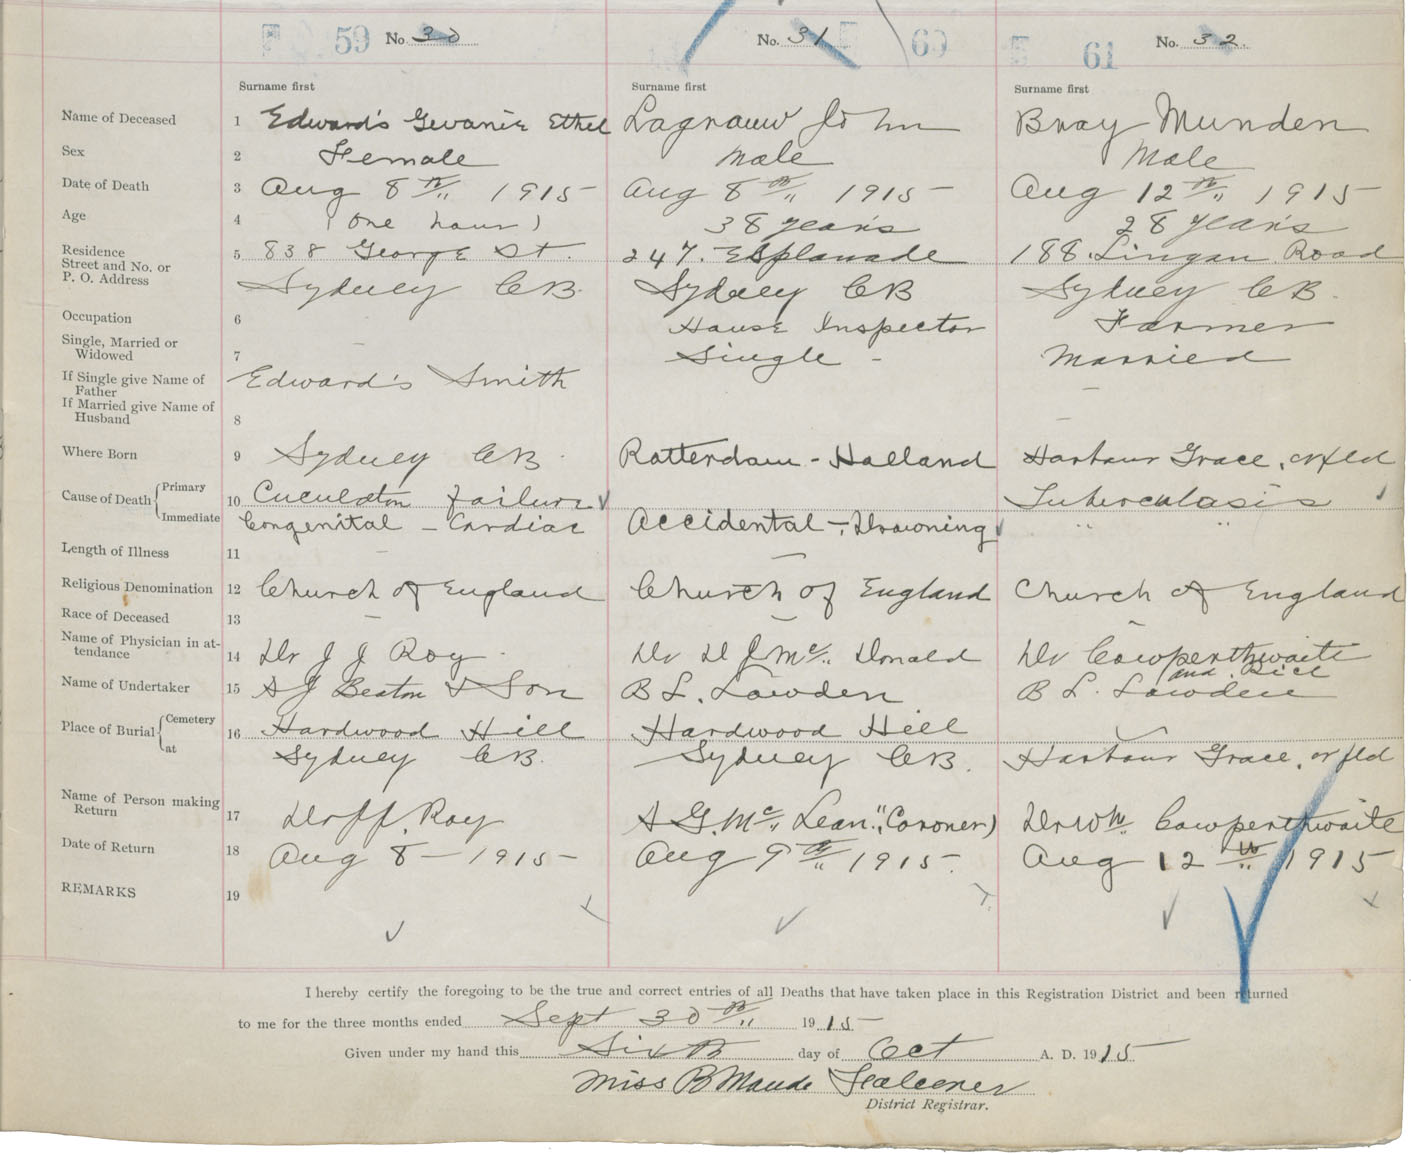 59 No. 30
No. 31 60
61 No. 32.
Surname first Surname first Surname first
Name of Deceased 1 Edward's Ethel Lagrauw John Bray Munden
Sex 2 Female male Male
Date of Death 3 Aug 8th 1915 Aug 8th 1915 Aug 12th 1915
Age 4 (One hour) 38 years 28 years
Residence
Street and No. or
P. O. Address
5 838 George St. 247. Esplanade 188. Lingan Road
Sydney CB. Sydney CB Sydney CB.
Occupation 6 House Inspector Farmer
Single, Married or
Widowed
7 - Single - Married
If Single give Name of
Father
Edward's Smith
If Married give Name of
Husband
8
Where Born 9 Sydney CB. Rotterdam - Holland Harbour Grace, Nfld
Cause of Death { Primary
Immediate
10 failure Tuberculosis
Congenital - Cardiac Accidental - Drowning " "
Length of Illness 11 -
Religious Denomination 12 Church of England Church of England Church of England
Race of Deceased 13 -
Name of Physician in at-
tendance
14 Dr J J Roy. Dr D J Mc Donald Dr Cowperthwaite
and Rice
Name of Undertaker 15 A J Beaton & Son B L. Lowden B L. Lowden
Place of Burial { Cemetery
at
16 Hardwood Hill Hardwood Hill
Sydney CB. Sydney CB. Harbour Grace, Nfld
Name of Person making
Return
17 Dr JJ. Roy A G. Mc Lean "(Coroner) Dr Wm. Cowperthwaite
Date of Return 18 Aug 8 - 1915 - Aug 9th 1915. Aug 12th 1915
REMARKS 19
I hereby certify the foregoing to be the true and correct entries of all Deaths that have taken place in this Registration District and been returned
to me for the three months ended Sept 30th 1915
Given under my hand this Sixth day of Oct A. D. 1915
Miss B Maude Falconer
District Registrar.